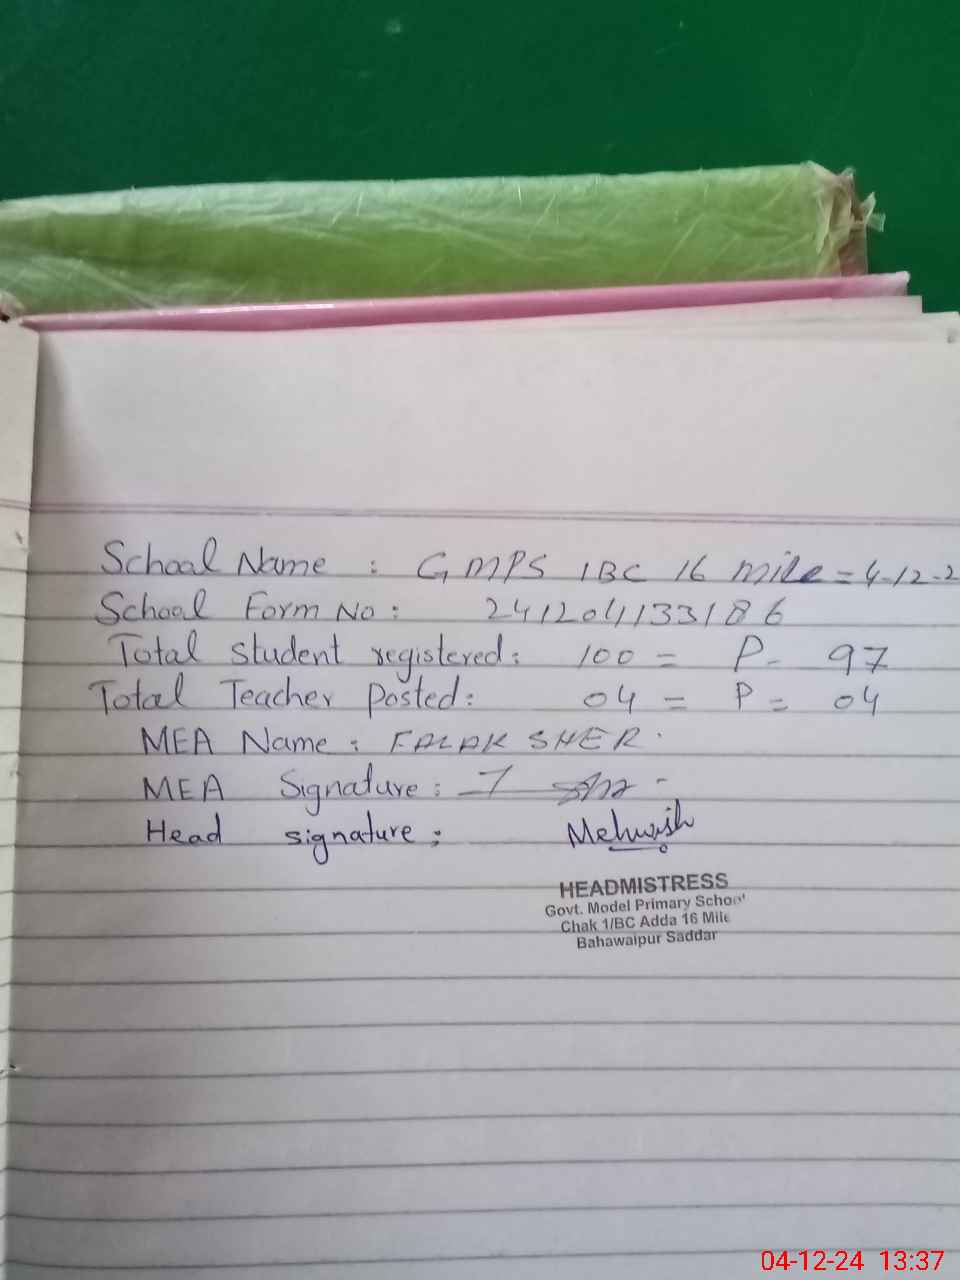 School Name : GMPS 1BC 16 mile = 4-12-2
School Form No : 241204133186
Total student registered: 100 = P- 97
Total Teacher posted: 04 = P = 04
MEA Name : FALAK SHER.
MEA Signature :
Head signature : Mehwish
HEADMISTRESS
Govt. Model Primary School
Chak 1/BC Adda 16 Mile
Bahawalpur Saddar
04-12-24 13:37